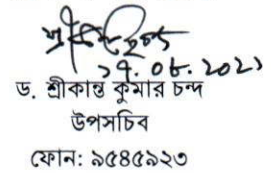 ১৭.০৮.২০২১
ড. শ্রীকান্ত কুমার চন্দ
উপসচিব
ফোন: ৯৫৪৫৯২৩